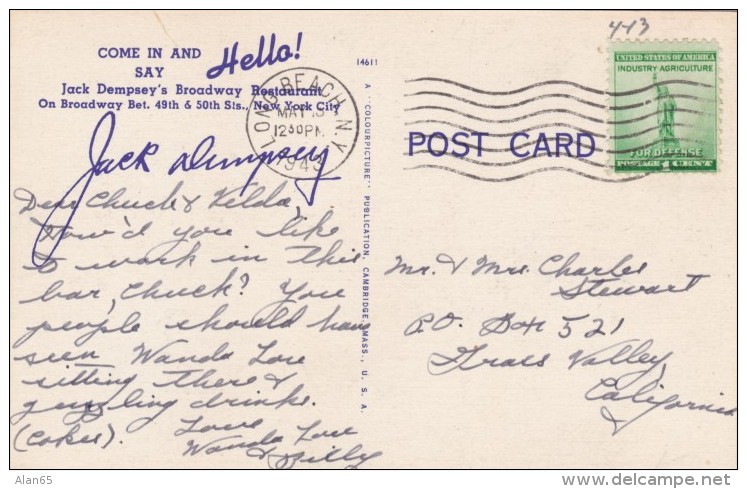 4-13
COME IN AND
SAY
Hello!
Jack Dempsey's Broadway Restaurant
On Broadway Bet. 49th & 50th Sts., New York City
Jack Dempsey
LONG BEACH N.Y.
MAY
12 30 PM
1943
14611
A "COLOURPICTURE" PUBLICATION, CAMBRIDGE, MASS., U. S. A.
POST CARD
UNITED STATES OF AMERICA
INDUSTRY AGRICULTURE
FOR DEFENSE
POSTAGE 1 CENT
Dear Chuck & Velda,
How'd you like
to work in this
bar, Chuck? You
people should have
seen Wanda Lou
sitting there &
guzzling drinks.
(cokes). Love
Wanda Lou
& Billy
Mr. & Mrs. Charles
Stewart
P.O. Box 521
Grass Valley,
California
Alan65
delcampe.net